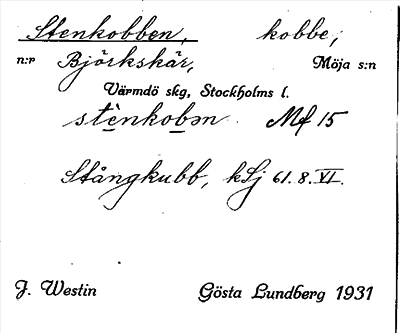 Stenkobben, kobbe,
n:r Björkskär, Möja s:n
Värmdö skg, Stockholms l.
stènkobən Mf 15
Stångkubb, kSj 61.8.VI.
J. Westin Gösta Lundberg 1931